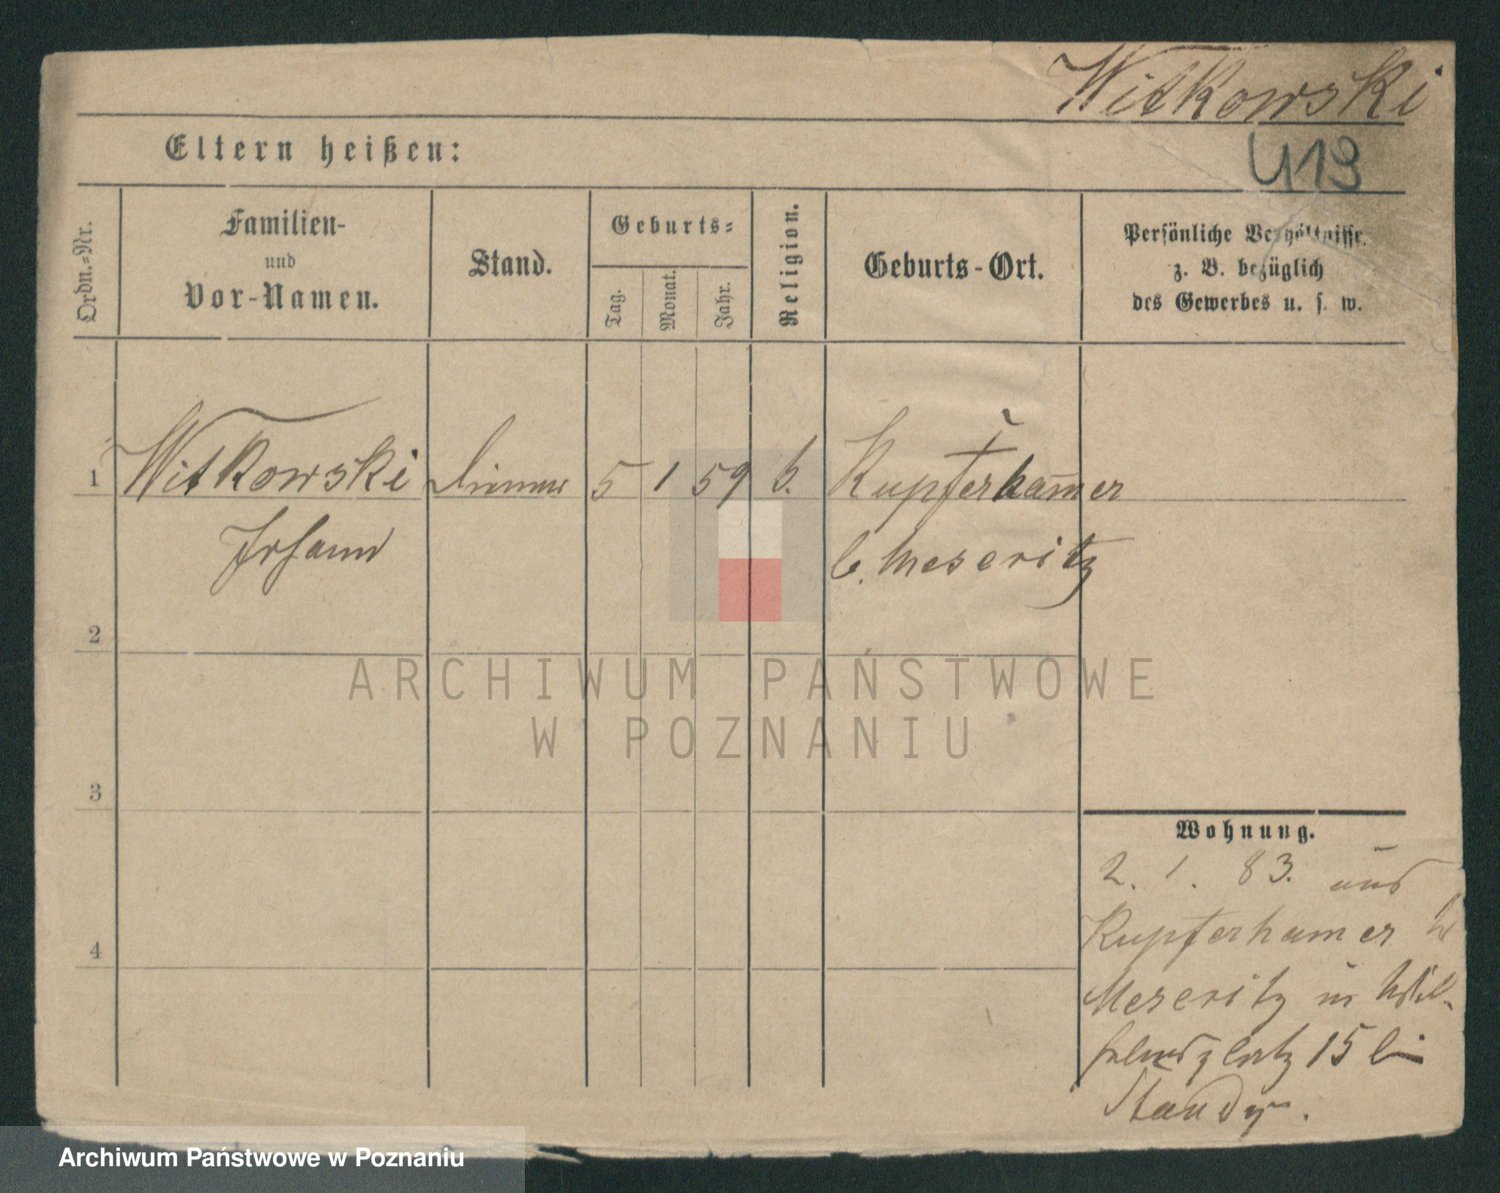 Witkowski
U13
Eltern heißen:
Ordn.=Nr.
Familien-
und
Vor-Namen.
Stand.
Geburts=
Tag.
Monat.
Jahr.
Religion.
Geburts-Ort.
Persönliche Verhältnisse,
z. B. bezüglich
des Gewerbes u. s. w.
1
Witkowski
5
1
59
Kupferham̄er
Johann
b. Meseritz
2
ARCHIWUM PAŃSTWOWE
W POZNANIU
3
Wohnung.
2. 1. 83. aus
Kupferhamer
4
Meseritz in
15 bei
Standy.
Archiwum Państwowe w Poznaniu